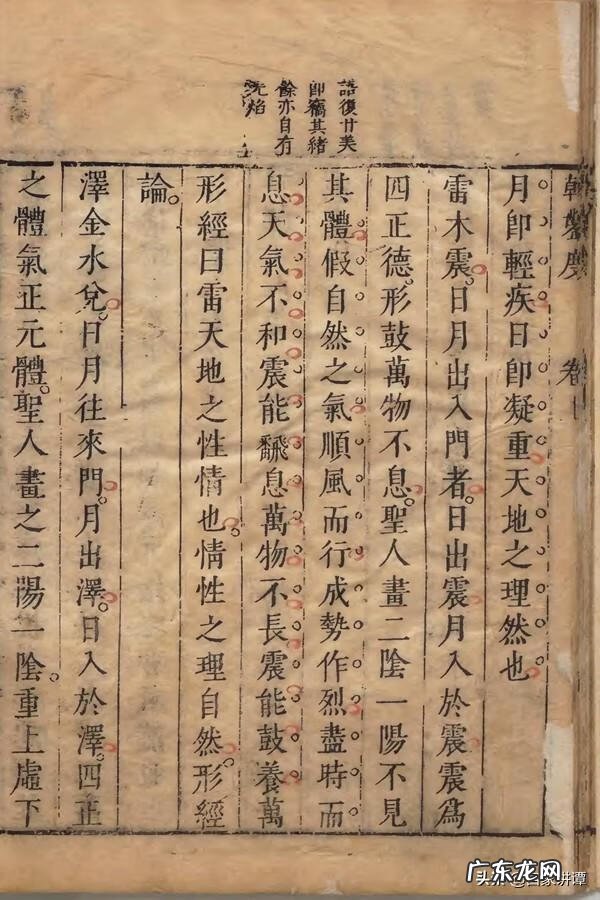 語復甘美
即竊其緒
餘亦自有
光焰
卷一
月即輕疾日即凝重天地之理然也
雷木震日月出入門者日出震月入於震震爲
四正德形鼓萬物不息聖人畫二陰一陽不見
其體假自然之氣順風而行成勢作烈盡時而
息天氣不和震能翻息萬物不長震能鼓養萬
形經曰雷天地之性情也情性之理自然形經
論
澤金水兌日月往來門月出澤日入於澤四正
之體氣正元體聖人畫之二陽一陰重上虛下
广东龙网